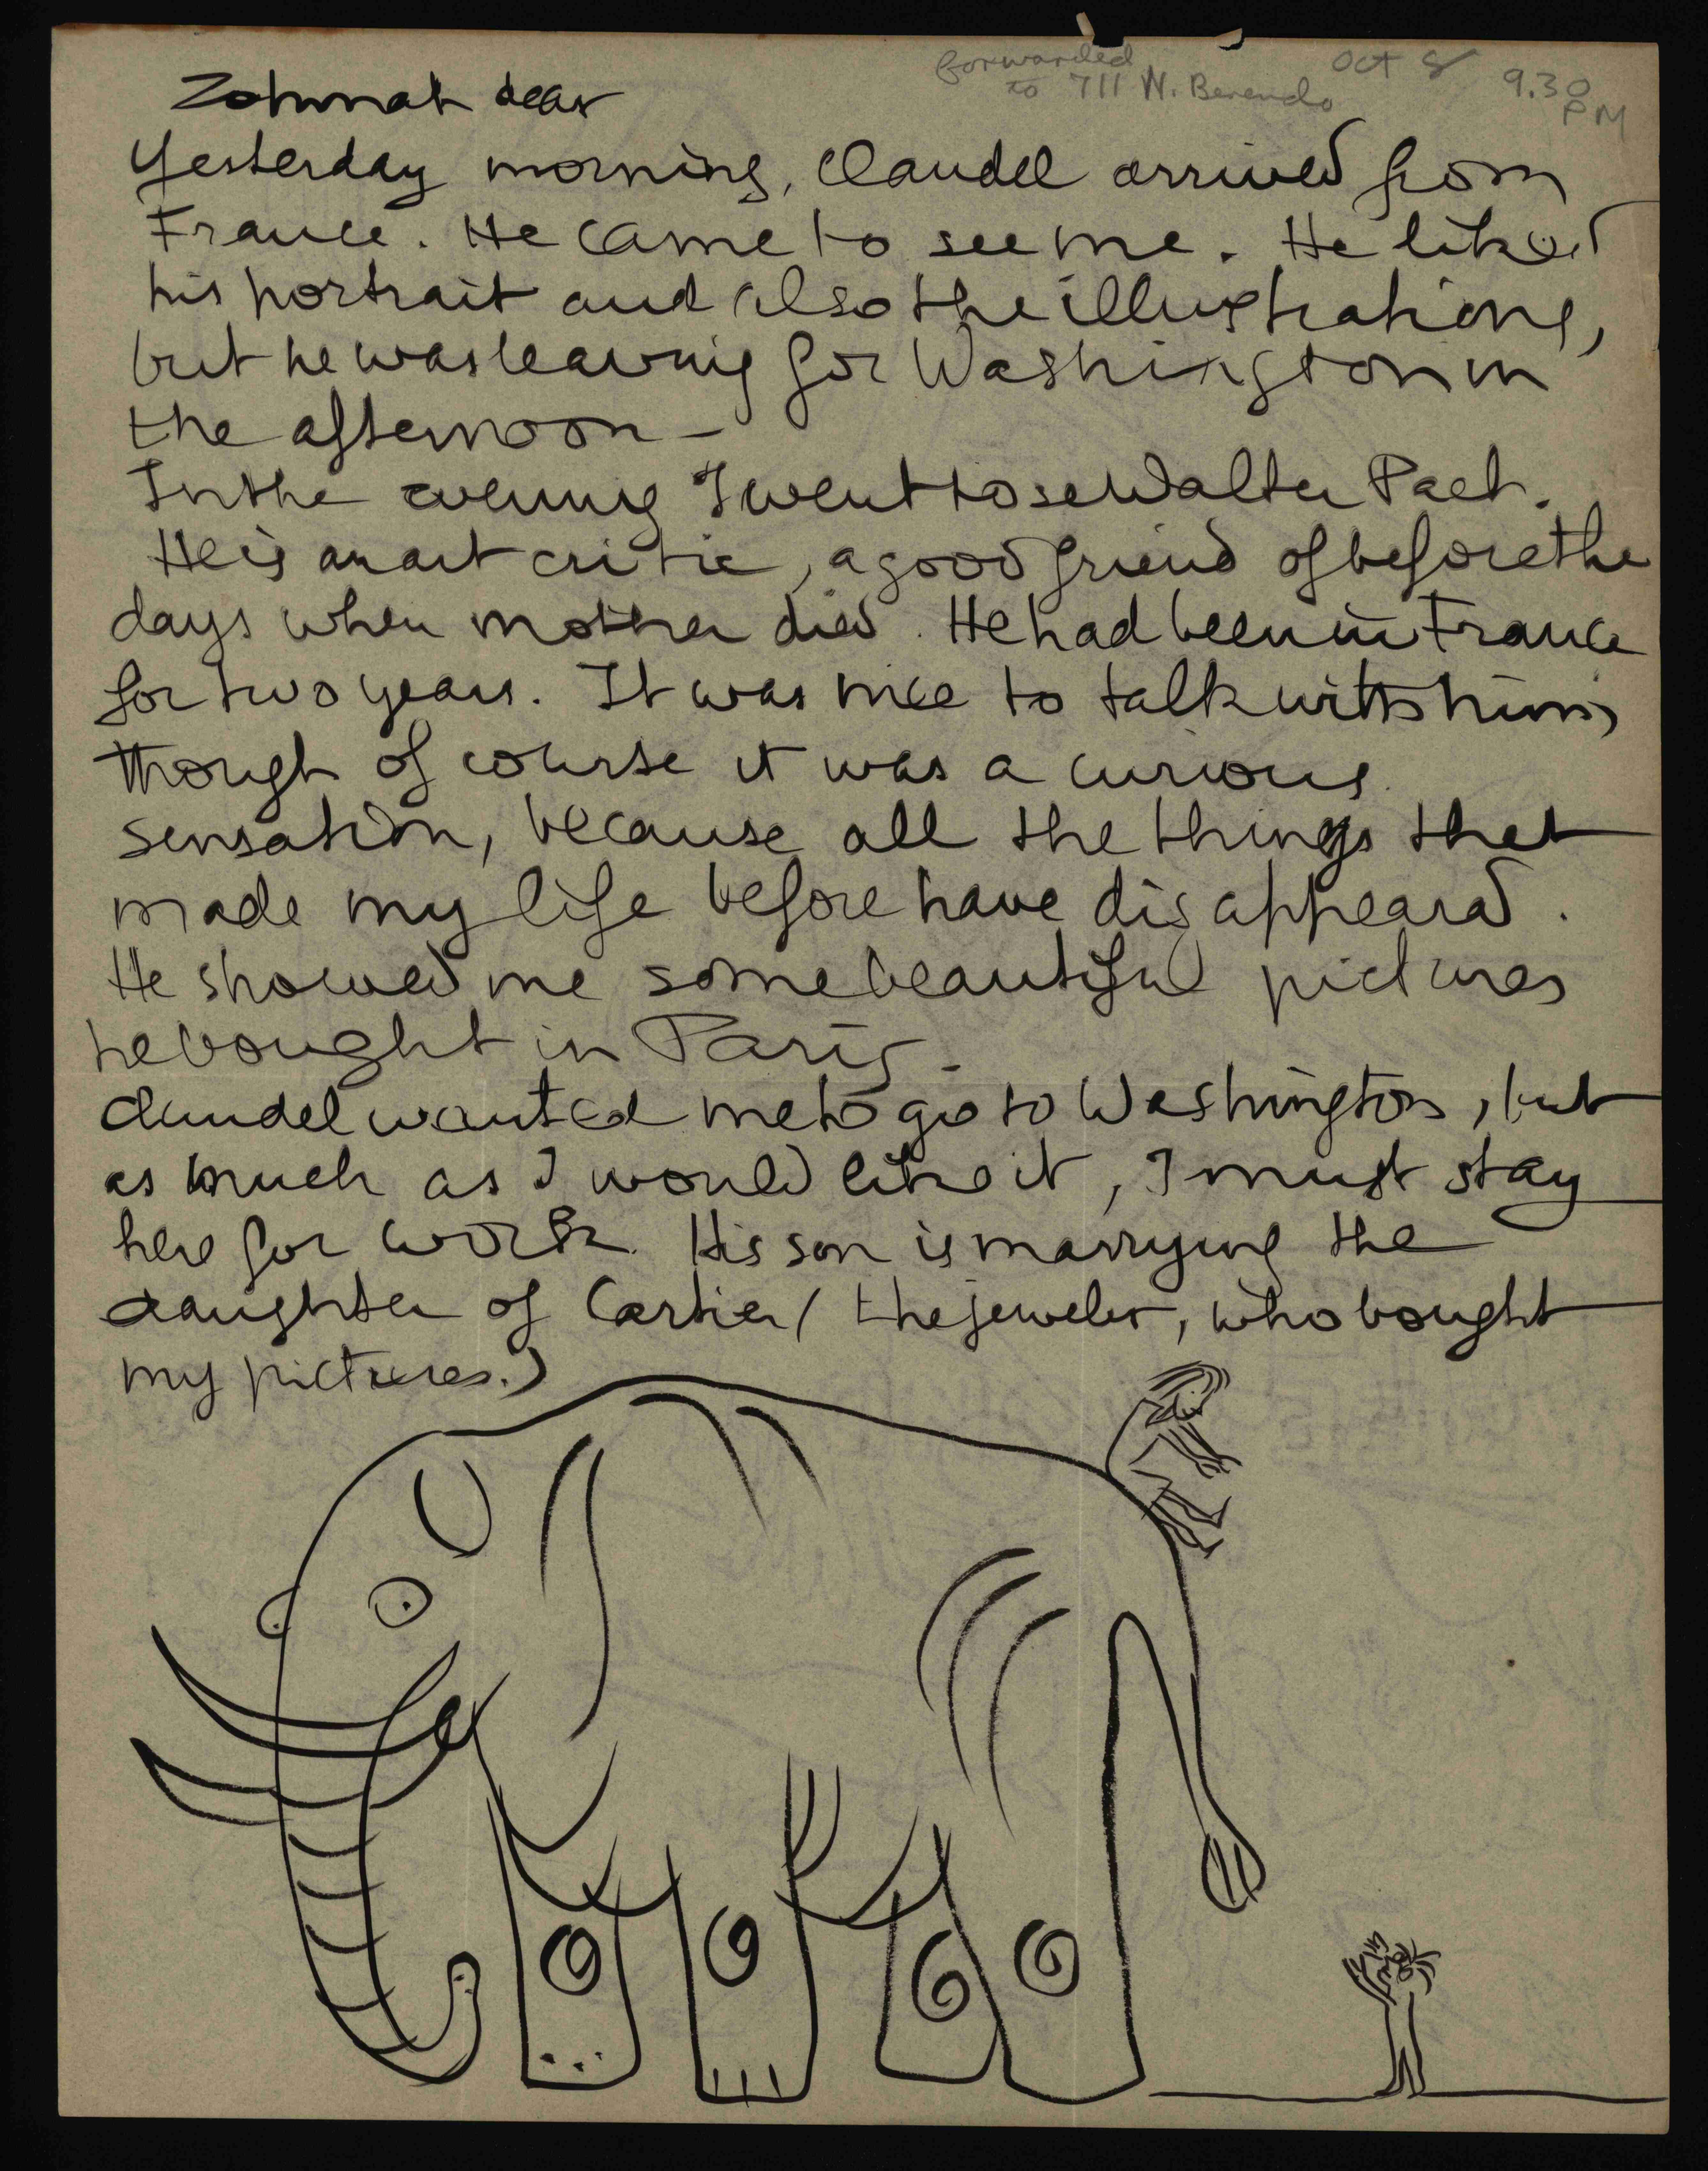 forwarded Oct 8 9.30
to 711 N. Berendo PM
Zohmah dear
Yesterday morning, Claudel arrived from
France. He came to see me. He liked
his portrait and also the illustrations,
but he was leaving for Washington in
the afternoon -
In the evening I went to se Walter Pach.
He is an art critic, a good friend of before the
days when mother died. He had been in France
for two years. It was nice to talk with him,
though of course it was a curious
sensation, because all the things that
made my life before have disappeared.
He showed me some beautiful pictures
he bought in Paris.
Claudel wanted me to go to Washington, but
as much as I would like it, I must stay
here for work. His son is marrying the
daughter of Cartier (the jeweler, who bought
my pictures.)